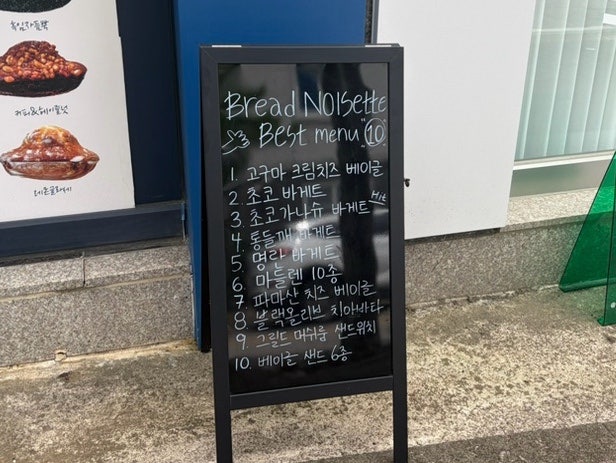 흑임자를빡
커피&헤이즐넛
레몬글라세
Bread NOISette
Best menu "10"
1. 고구마 크림치즈 베이글
2. 초코 바게트
3. 초코가나슈 바게트 Hit
4. 통들깨 바게트
5. 명란 바게트
6. 마들렌 10종
7. 파마산 치즈 베이글
8. 블랙올리브 치아바타
9. 그릴드 머쉬룸 샌드위치
10. 베이글 샌드 6종